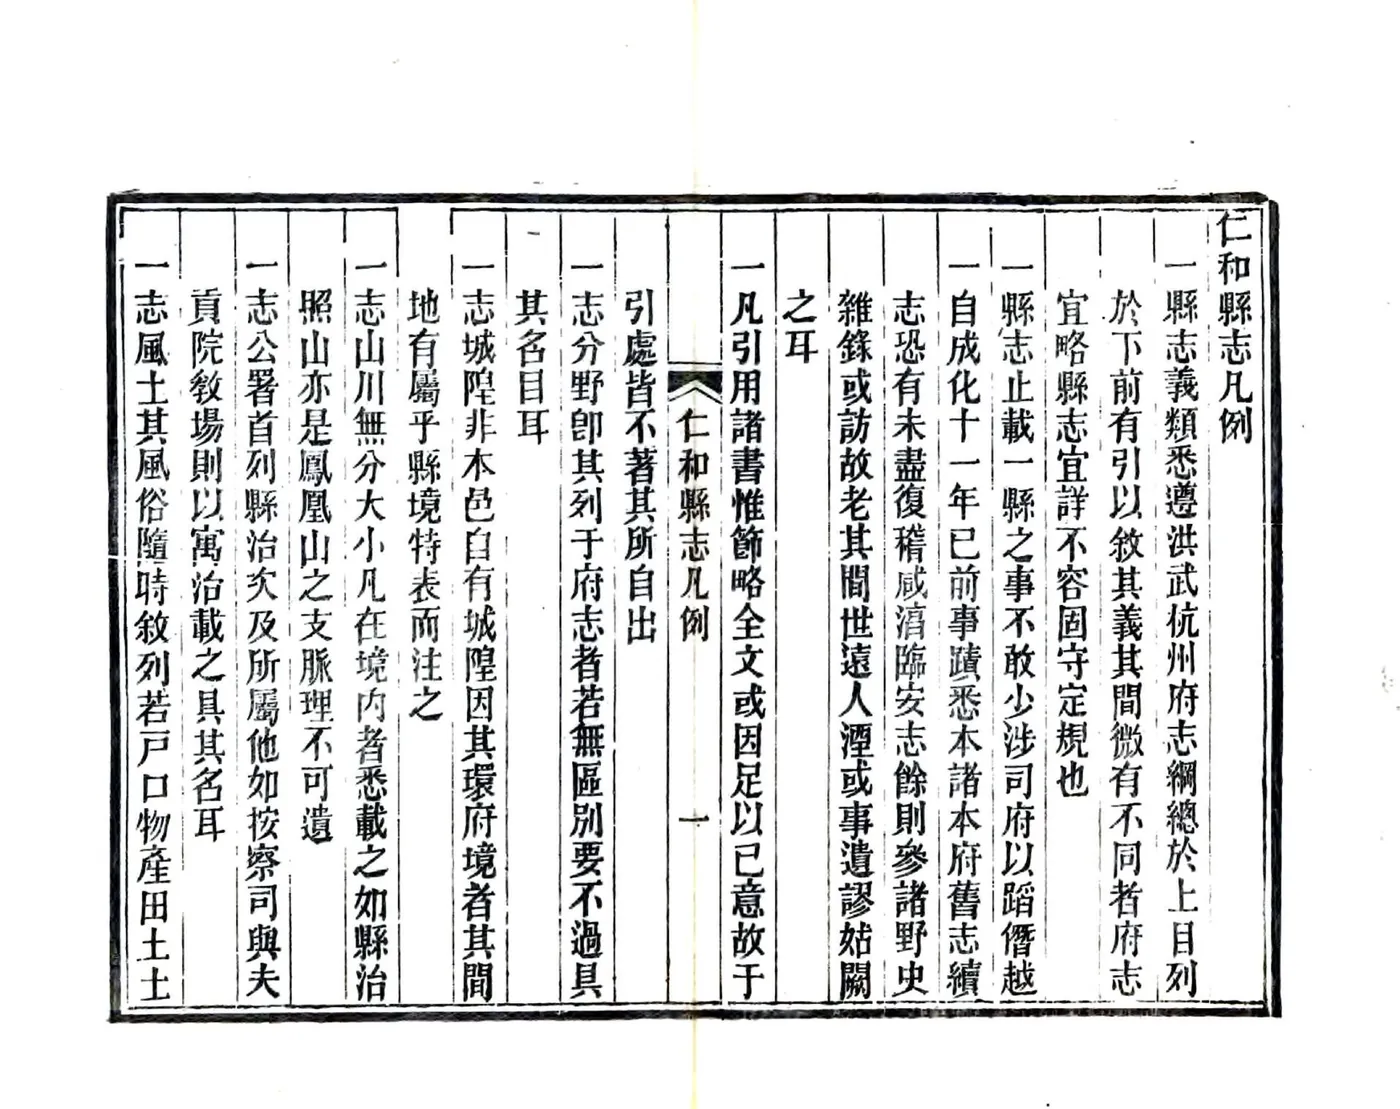 仁和縣志凡例
一縣志義類悉遵洪武杭州府志綱總於上目列
於下前有引以敘其義其間微有不同者府志
宜略縣志宜詳不容固守定規也
一縣志止載一縣之事不敢少涉司府以蹈僭越
一自成化十一年已前事蹟悉本諸本府舊志續
志恐有未盡復稽咸淳臨安志餘則參諸野史
雜錄或訪故老其間世遠人湮或事遺謬姑闕
之耳
一凡引用諸書惟節略全文或因足以已意故于
仁和縣志凡例 一
引處皆不著其所自出
一志分野卽其列于府志者若無區別要不過具
其名目耳
一志城隍非本邑自有城隍因其環府境者其間
地有屬乎縣境特表而注之
一志山川無分大小凡在境內者悉載之如縣治
照山亦是鳳凰山之支脈理不可遺
一志公署首列縣治次及所屬他如按察司與夫
貢院教場則以寓治載之具其名耳
一志風土其風俗隨時敘列若戸口物產田土土